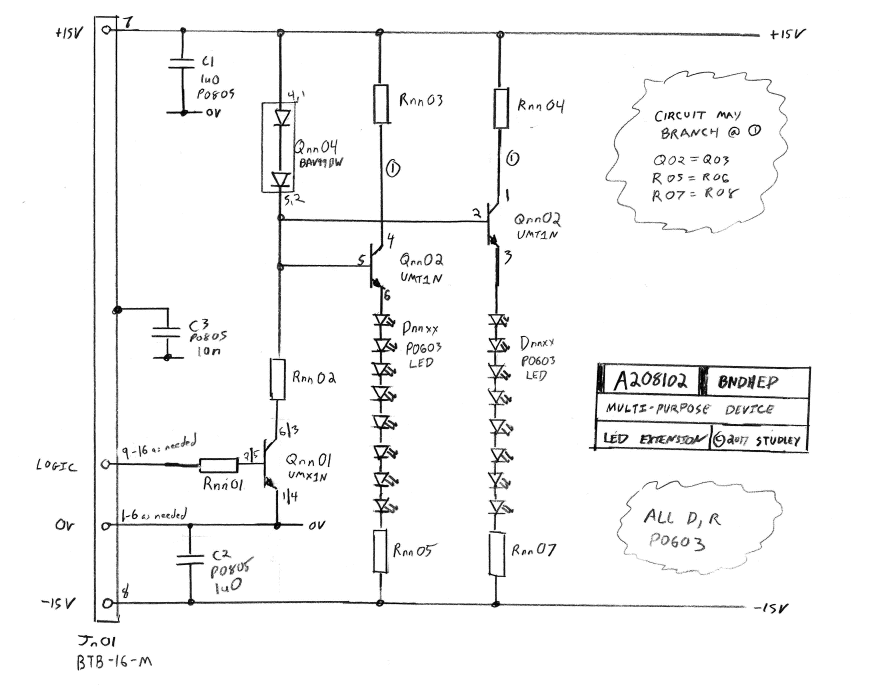 7
+15V
+15V
C1
1u0
P0805
0V
4,1
Qnn04
BAV99DW
5,2
Rnn03
Rnn04
①
①
CIRCUIT MAY
BRANCH @ ①
Q02 = Q03
R05 = R06
R07 = R08
1
2
Qnn02
UMT1N
3
4
5
Qnn02
UMT1N
6
C3
P0805
10n
Dnnxx
P0603
LED
Dnnxx
P0603
LED
Rnn02
A208102
BNDHEP
MULTI-PURPOSE DEVICE
LED EXTENSION
©2017 STUDLEY
6/3
9-16 as needed
LOGIC
2/5
Qnn01
UMX1N
Rnn01
1/4
1-6 as needed
0V
0V
ALL D, R
P0603
C2
P0805
1u0
Rnn05
Rnn07
8
-15V
-15V
Jn01
BTB-16-M